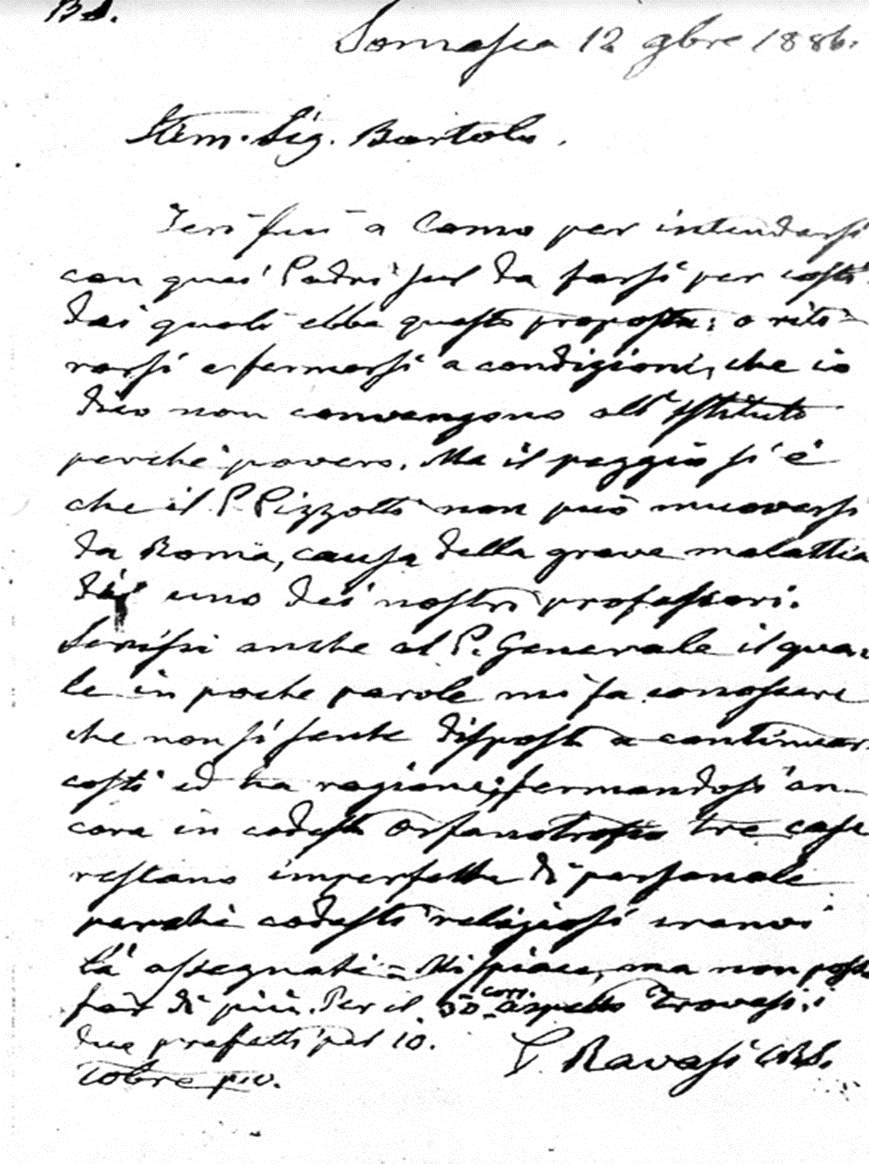 B.D.
Somasca 12 9bre 1886.
Stim. Sig. Bartolo.
Jeri fui a Como per intendersi
con quei Padri sul da farsi per costì
dai quali ebbe questa proposta: o riti-
rarsi e fermarsi a condizioni, che io
dico non convengono all'Istituto
perchè povero. Ma il peggio si è
che il P. Pizzotti non può muoversi
da Roma, causa della grave malattia
di uno dei nostri professori.
Scrissi anche al P. Generale il qua-
le in poche parole mi fa conoscere
che non si sente disposto a continuar
costì ed ha ragione; fermandosi an-
cora in codesto Orfanotrofio tre case
restano imperfette di personale
perchè codesti religiosi eranvi
là assegnati - Mi spiace, ma non posso
far di più. Per il 30 corr. aspetto
due prefetti pel 10.
P. Ravasi CRS.